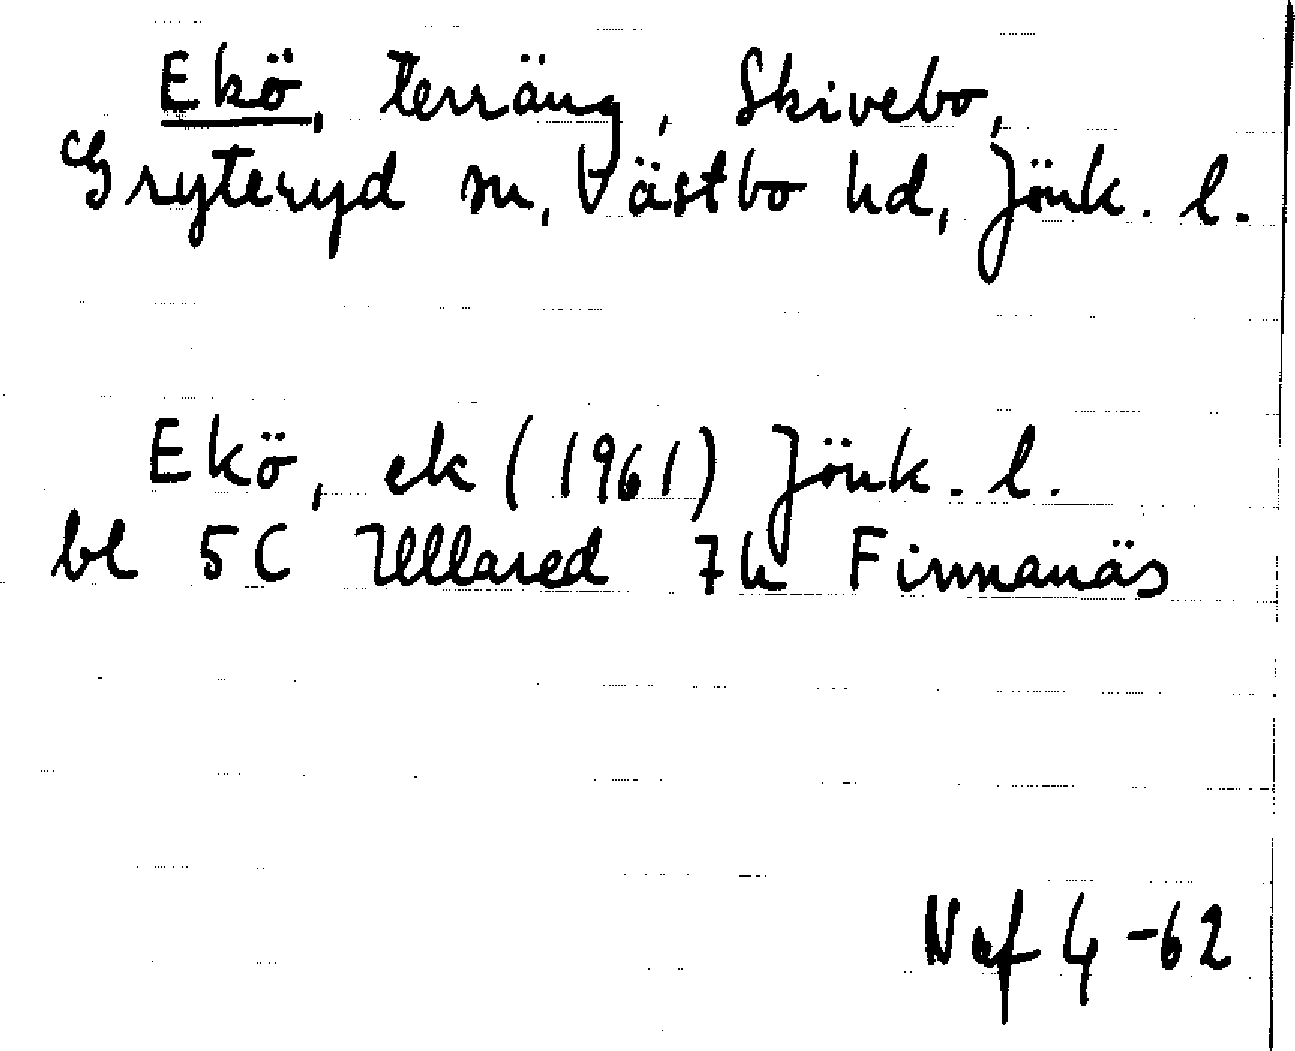 Ekö, terräng, Skivebo,
Gryteryd sn, Västbo hd, Jönk. l.
Ekö, ek (1961) Jönk. l.
bl 5C Ullared 7h Finnanäs
Naf 4 -62